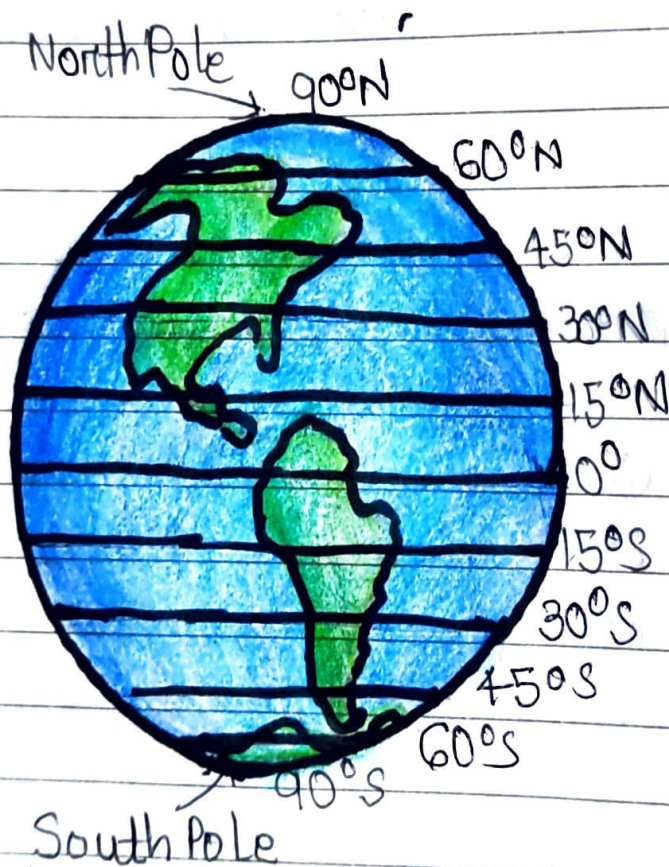 North Pole
90°N
60°N
45°N
30°N
15°N
0°
15°S
30°S
45°S
60°S
90°S
South Pole